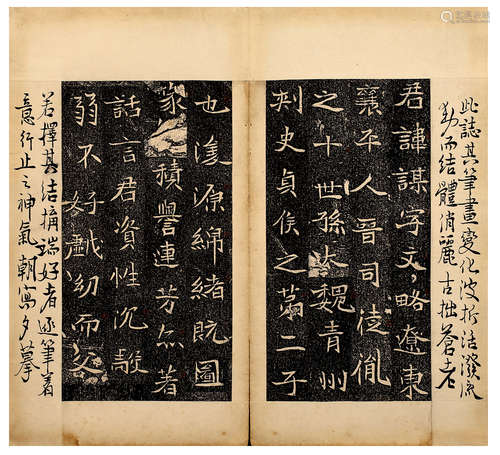 此誌其筆畫變化波折活潑流
動而結體俏麗古拙蒼老
君諱謀字文略遼東
襄平人晉司徒胤
之十世孫大魏青州
刺史貞侯之第二子
也濬源綿緒既圖
積譽連芳亦著
話言君資性沉敏
弱不好戲幼而
若擇其結構端好者逐筆着
意行止之神氣朝寫夕摹